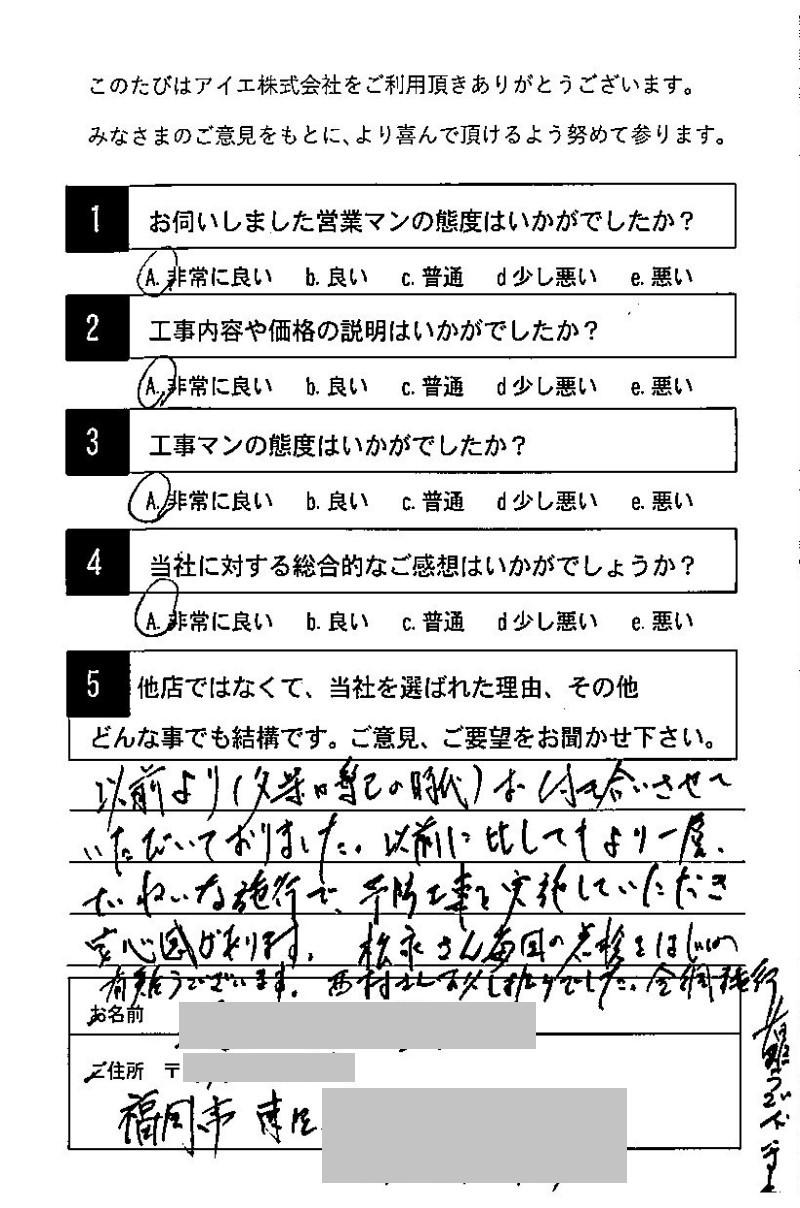 このたびはアイエ株式会社をご利用頂きありがとうございます。
みなさまのご意見をもとに、より喜んで頂けるよう努めて参ります。
1 お伺いしました営業マンの態度はいかがでしたか？
A. 非常に良い b. 良い c. 普通 d 少し悪い e. 悪い
2 工事内容や価格の説明はいかがでしたか？
A. 非常に良い b. 良い c. 普通 d 少し悪い e. 悪い
3 工事マンの態度はいかがでしたか？
A. 非常に良い b. 良い c. 普通 d 少し悪い e. 悪い
4 当社に対する総合的なご感想はいかがでしょうか？
A. 非常に良い b. 良い c. 普通 d 少し悪い e. 悪い
5 他店ではなくて、当社を選ばれた理由、その他
どんな事でも結構です。ご意見、ご要望をお聞かせ下さい。
以前より( の時代)お付き合いさせて
いただいておりました。以前に比してもより一層、
ていねいな施行で、 工事を実施していただき
安心感があります。 松永さん毎回の点検をはじめ
有難うございます。西村さんお久し振りでした。金網施行
有難うございました
お名前
ご住所 〒
福岡市 東区